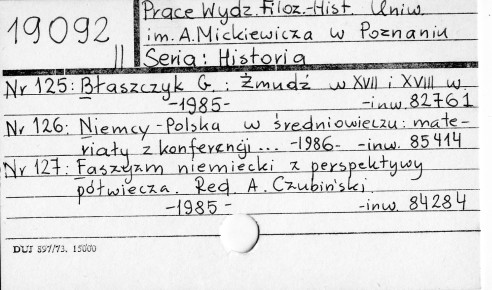 Prace Wydz. Filoz.-Hist. Uniw.
19092 im. A. Mickiewicza w Poznaniu
|| Seria: Historia
Nr 125: Błaszczyk G.: Żmudź w XVII i XVIII w.
-1985- -inw. 82761
Nr 126: Niemcy-Polska w średniowieczu: mate-
riały z konferencji ... -1986- -inw. 85414
Nr 127: Faszyzm niemiecki z perspektywy
półwiecza. Red. A. Czubiński.
-1985- -inw. 84284
DUJ 597/73. 15000